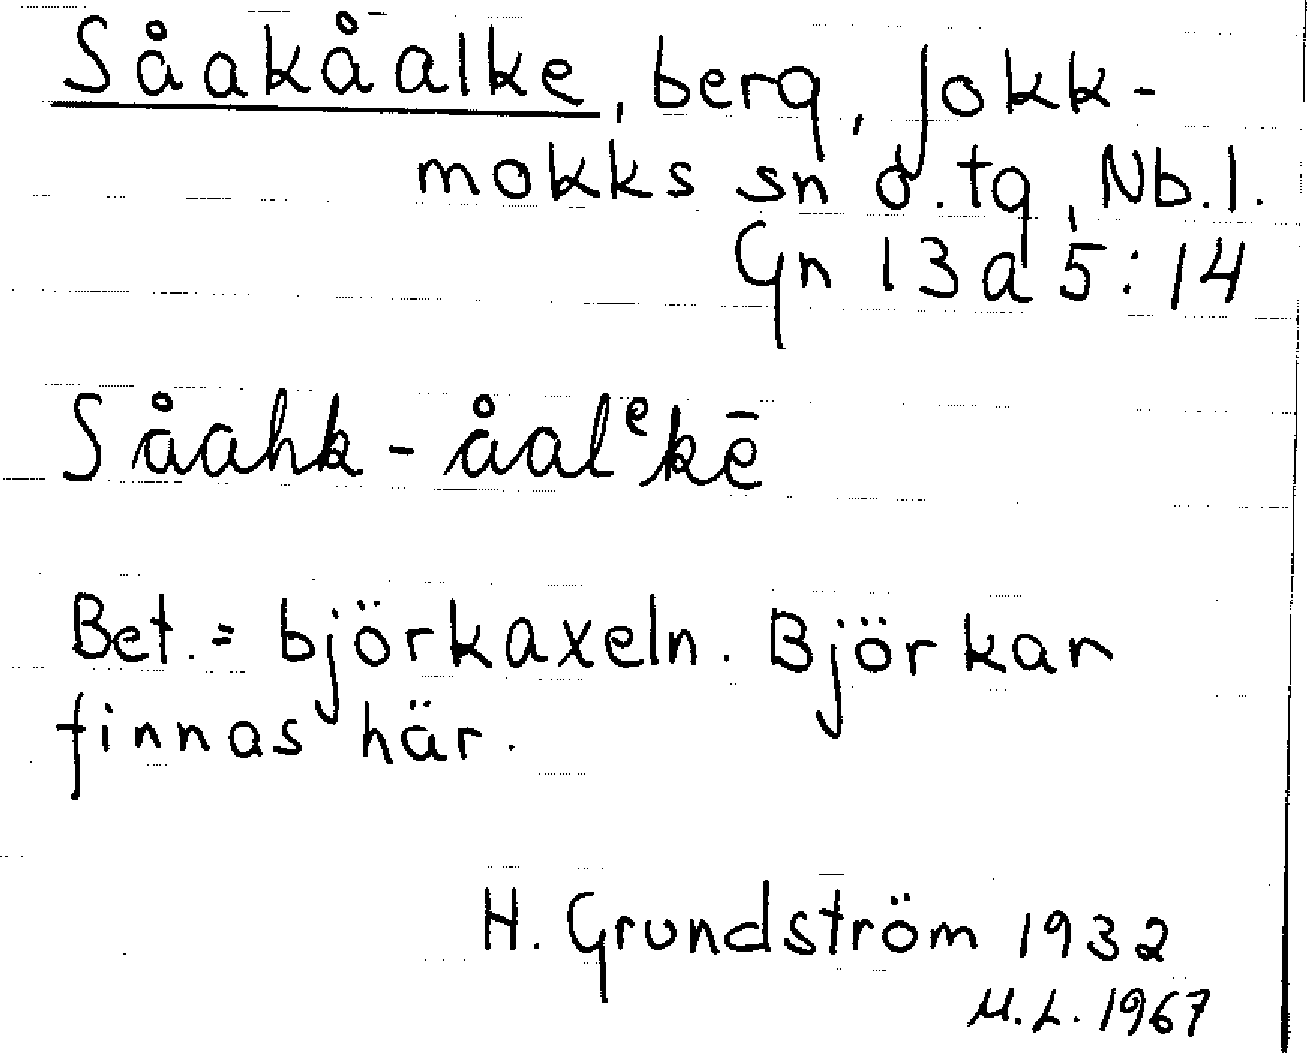 Såakåalke, berg, Jokk-
mokks sn o. tg, Nb. l.
Gn 13 a 5:14
Såahk - åalᵉkē
Bet. = björkaxeln. Björkar
finnas här.
H. Grundström 1932
M.L. 1967